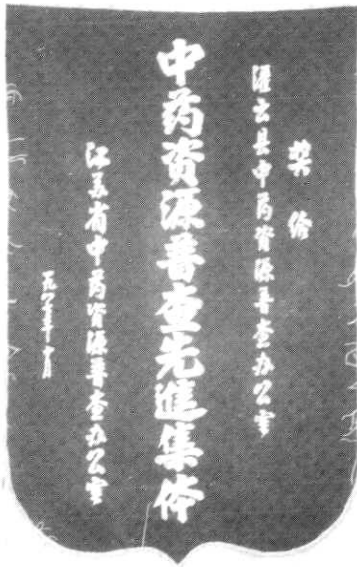 奖给
灌云县中药资源普查办公室
中药资源普查先進集体
江苏省中药资源普查办公室
一九八 年 月